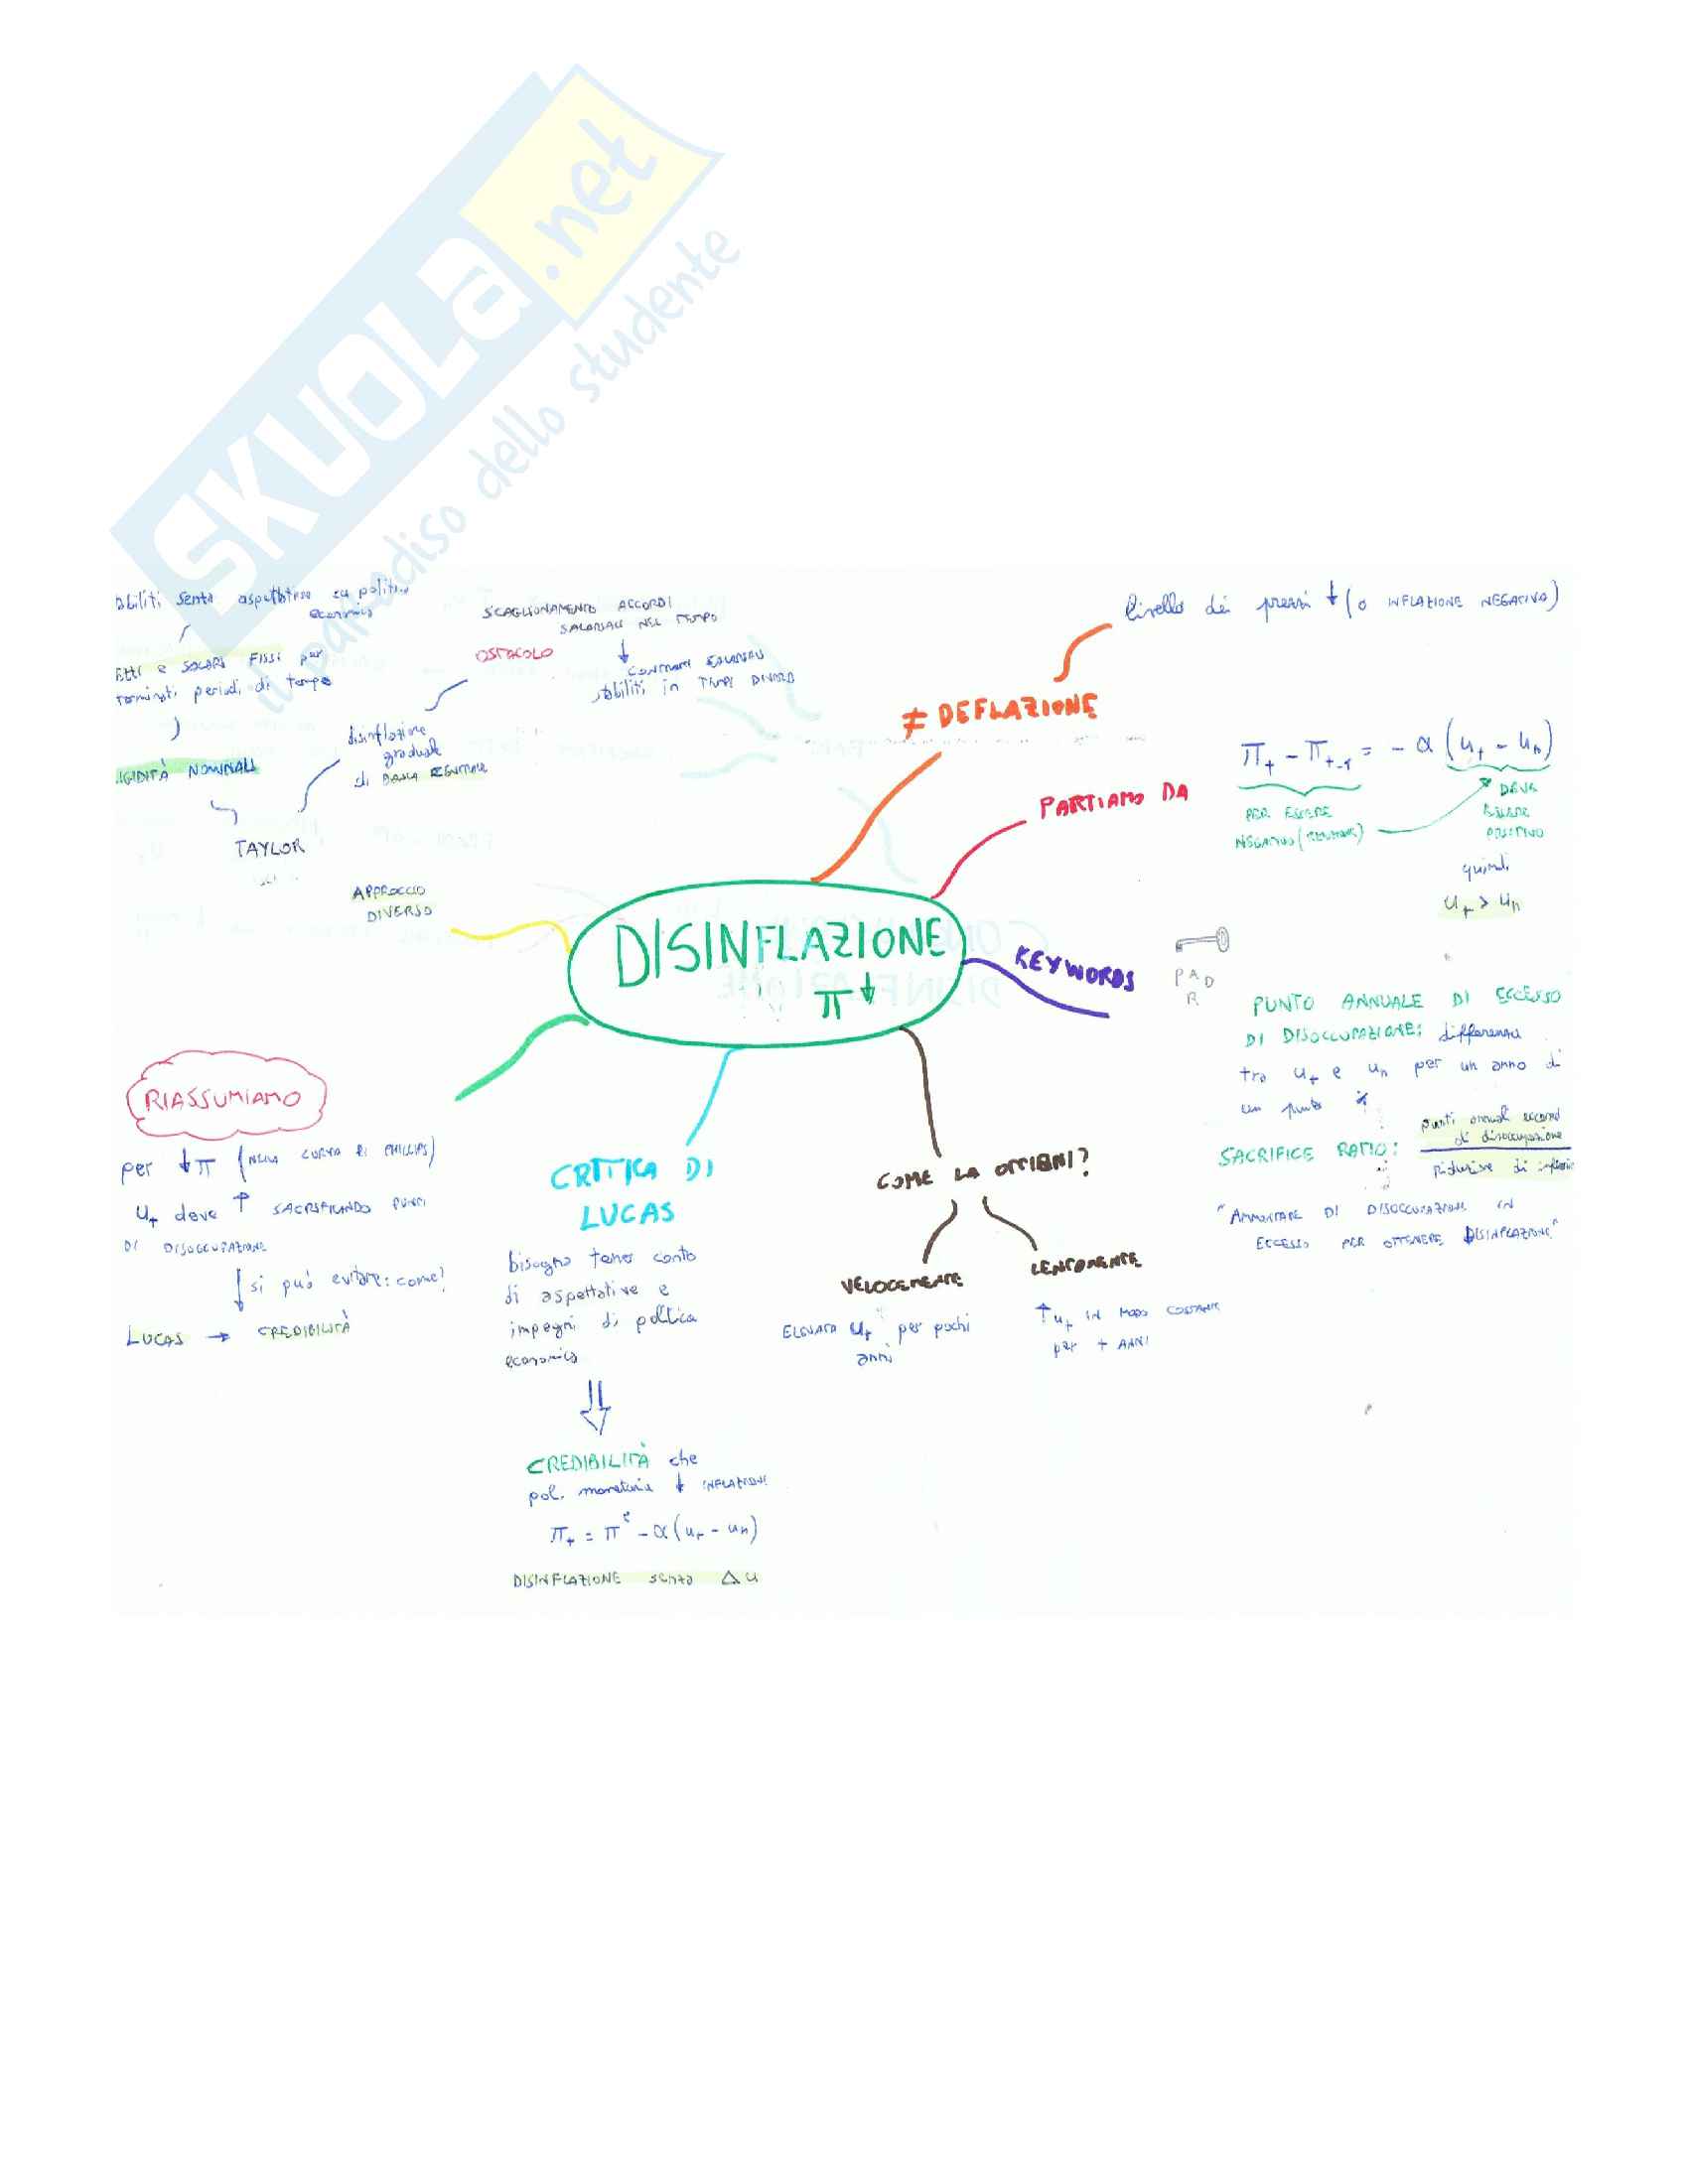 SKUOLA.net
il paradiso dello studente
DISINFLAZIONE
π ↓
≠ DEFLAZIONE
livello dei prezzi ↓ (o INFLAZIONE NEGATIVA)
PARTIAMO DA
πt - πt-1 = - α (ut - un)
PER ESSERE
NEGATIVO
DEVE
ESSERE
POSITIVO
quindi
ut > un
KEYWORDS
PAD
R
PUNTO ANNUALE DI ECCESSO
DI DISOCCUPAZIONE: differenza
tra ut e un per un anno di
un punto %
SACRIFICE RATIO:
punti annuali eccesso
di disoccupazione
riduzione di
"AMMONTARE DI DISOCCUPAZIONE IN
ECCESSO PER OTTENERE DISINFLAZIONE"
COME LA OTTIENI?
VELOCEMENTE
ELEVATA ut per pochi
anni
LENTAMENTE
↑ ut IN MODO COSTANTE
per + ANNI
CRITICA DI
LUCAS
bisogna tener conto
di aspettative e
impegni di politica
economica
⇓
CREDIBILITÀ che
pol. monetaria ↓ INFLAZIONE
πt = πe - α (ut - un)
DISINFLAZIONE senza Δu
RIASSUMIAMO
per ↓ π (NELLA CURVA DI PHILLIPS)
ut deve ↑ SACRIFICANDO PUNTI
DI DISOCCUPAZIONE
↓ si può evitare: come?
LUCAS → CREDIBILITÀ
APPROCCIO
DIVERSO
TAYLOR
disinflazione
graduale
OSTACOLO
SCAGLIONAMENTO ACCORDI
SALARIALI NEL TEMPO
↓
CONTRATTI SALARIALI
stabiliti in TEMPI DIVERSI
IGIDITÀ NOMINALI
e SALARI FISSI per
periodi di tempo
abiliti senza aspettative su politica
economica